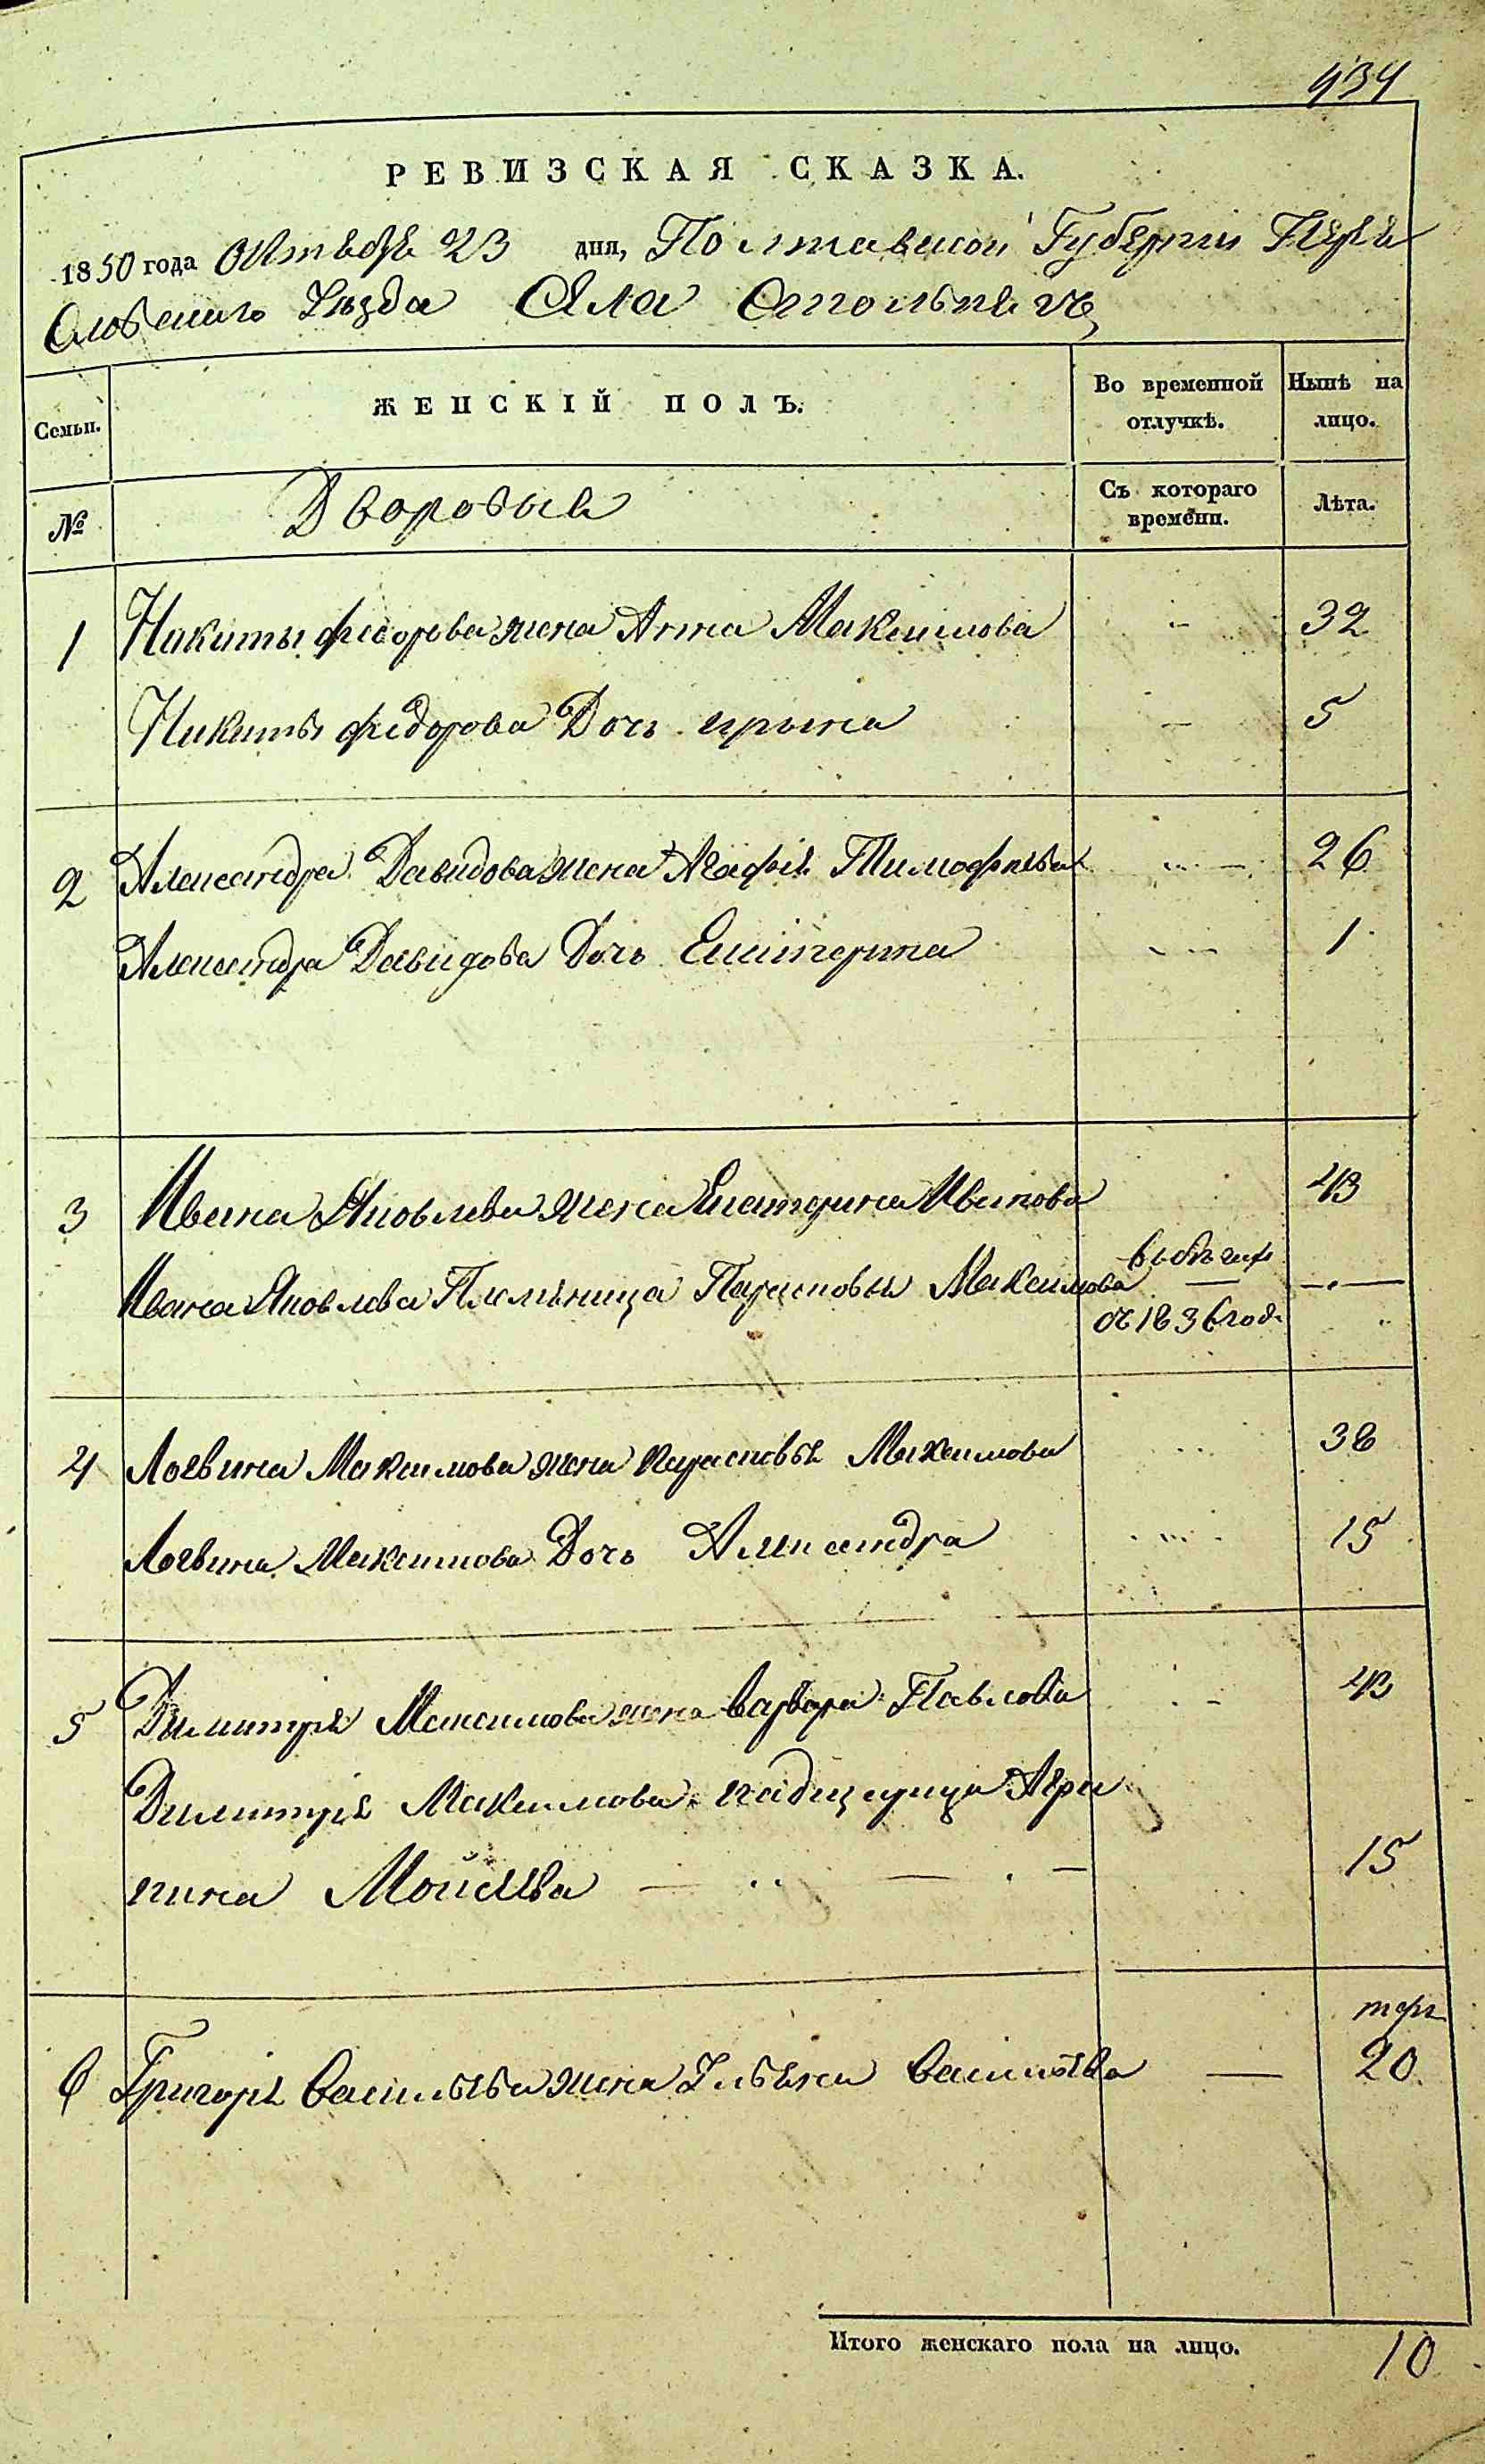 434
РЕВИЗСКАЯ СКАЗКА.
1850 года Октября 23 дня, Полтавской Губернии Пере
Уезда Села
Семьи. ЖЕНСКІЙ ПОЛЪ. Во временной отлучкѣ. Нынѣ на лицо.
№ Дворовые Съ котораго времени. Лѣта.
1 Никиты Федорова жена Анна Максимова - 32
Никиты Федорова Дочь ирына - 5
2 Александра Давидова жена Агафія Тимофѣева 26
Александра Давидова Дочь Екатерина 1
3 Ивана Яковлева жена Екатерина Иванова 43
Ивана Яковлева Племѣница Парасковья Максимова въ бѣгах —
съ 1836 год.
4 Логвина Максимова жена парасковья Максимова 38
Логвина Максимова Дочь Александра 15
5 Димитрія Максимова жена варвара Павлова 43
Димитрія Максимова падщерица Агри
пина Моисѣева 15
6 Григорія Васильева жена Ульяна Васильева — 20
Итого женскаго пола на лицо. 10